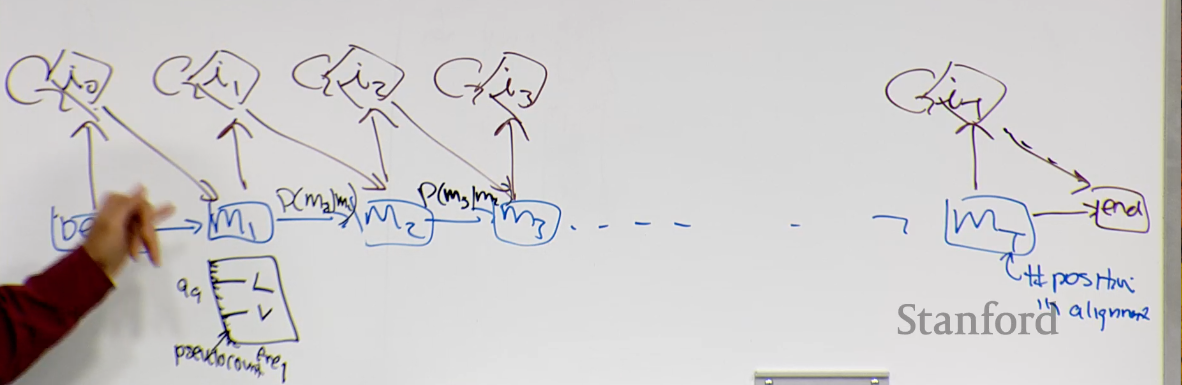 i0 i1 i2 i3 iT
be m1 P(m2|m1) m2 P(m3|m2 m3 mT end
aa L
V
pseudocount
# position
in alignment
Stanford